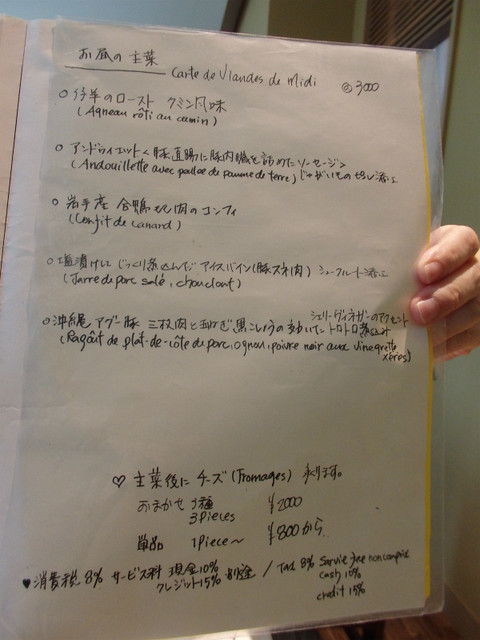 お昼の主菜 Carte de Viandes de Midi @3000
○ 仔羊のロースト クミン風味
(Agneau rôti au cumin)
○ アンドゥイエット<豚直腸に豚内臓を詰めたソーセージ>
(Andouillette avec de pomme de terre) じゃがいもの 添え
○ 岩手産 合鴨もも肉のコンフィ
(Confit de canard)
○ 塩漬けして じっくり煮込んだ アイスバイン(豚スネ肉) シュークルート添え
(Jarre de porc salé, chouclout)
シェリーヴィネガーのアクセント
○ 沖縄産 アグー豚 三枚肉と玉ねぎ 黒こしょうの効いた トロトロ煮込み
(Ragoût de plat-de-côte de porc, ognon, poivre noir aux vinegrette
xérès)
♡ 主菜後に チーズ (Fromages) 承ります。
おまかせ 3種 ¥2000
3pieces
単品 1piece〜 ¥800から
♥消費税 8% サービス料 現金10% 別途 / Tax 8% Servie non compris
クレジット15% cash 10%
credit 15%